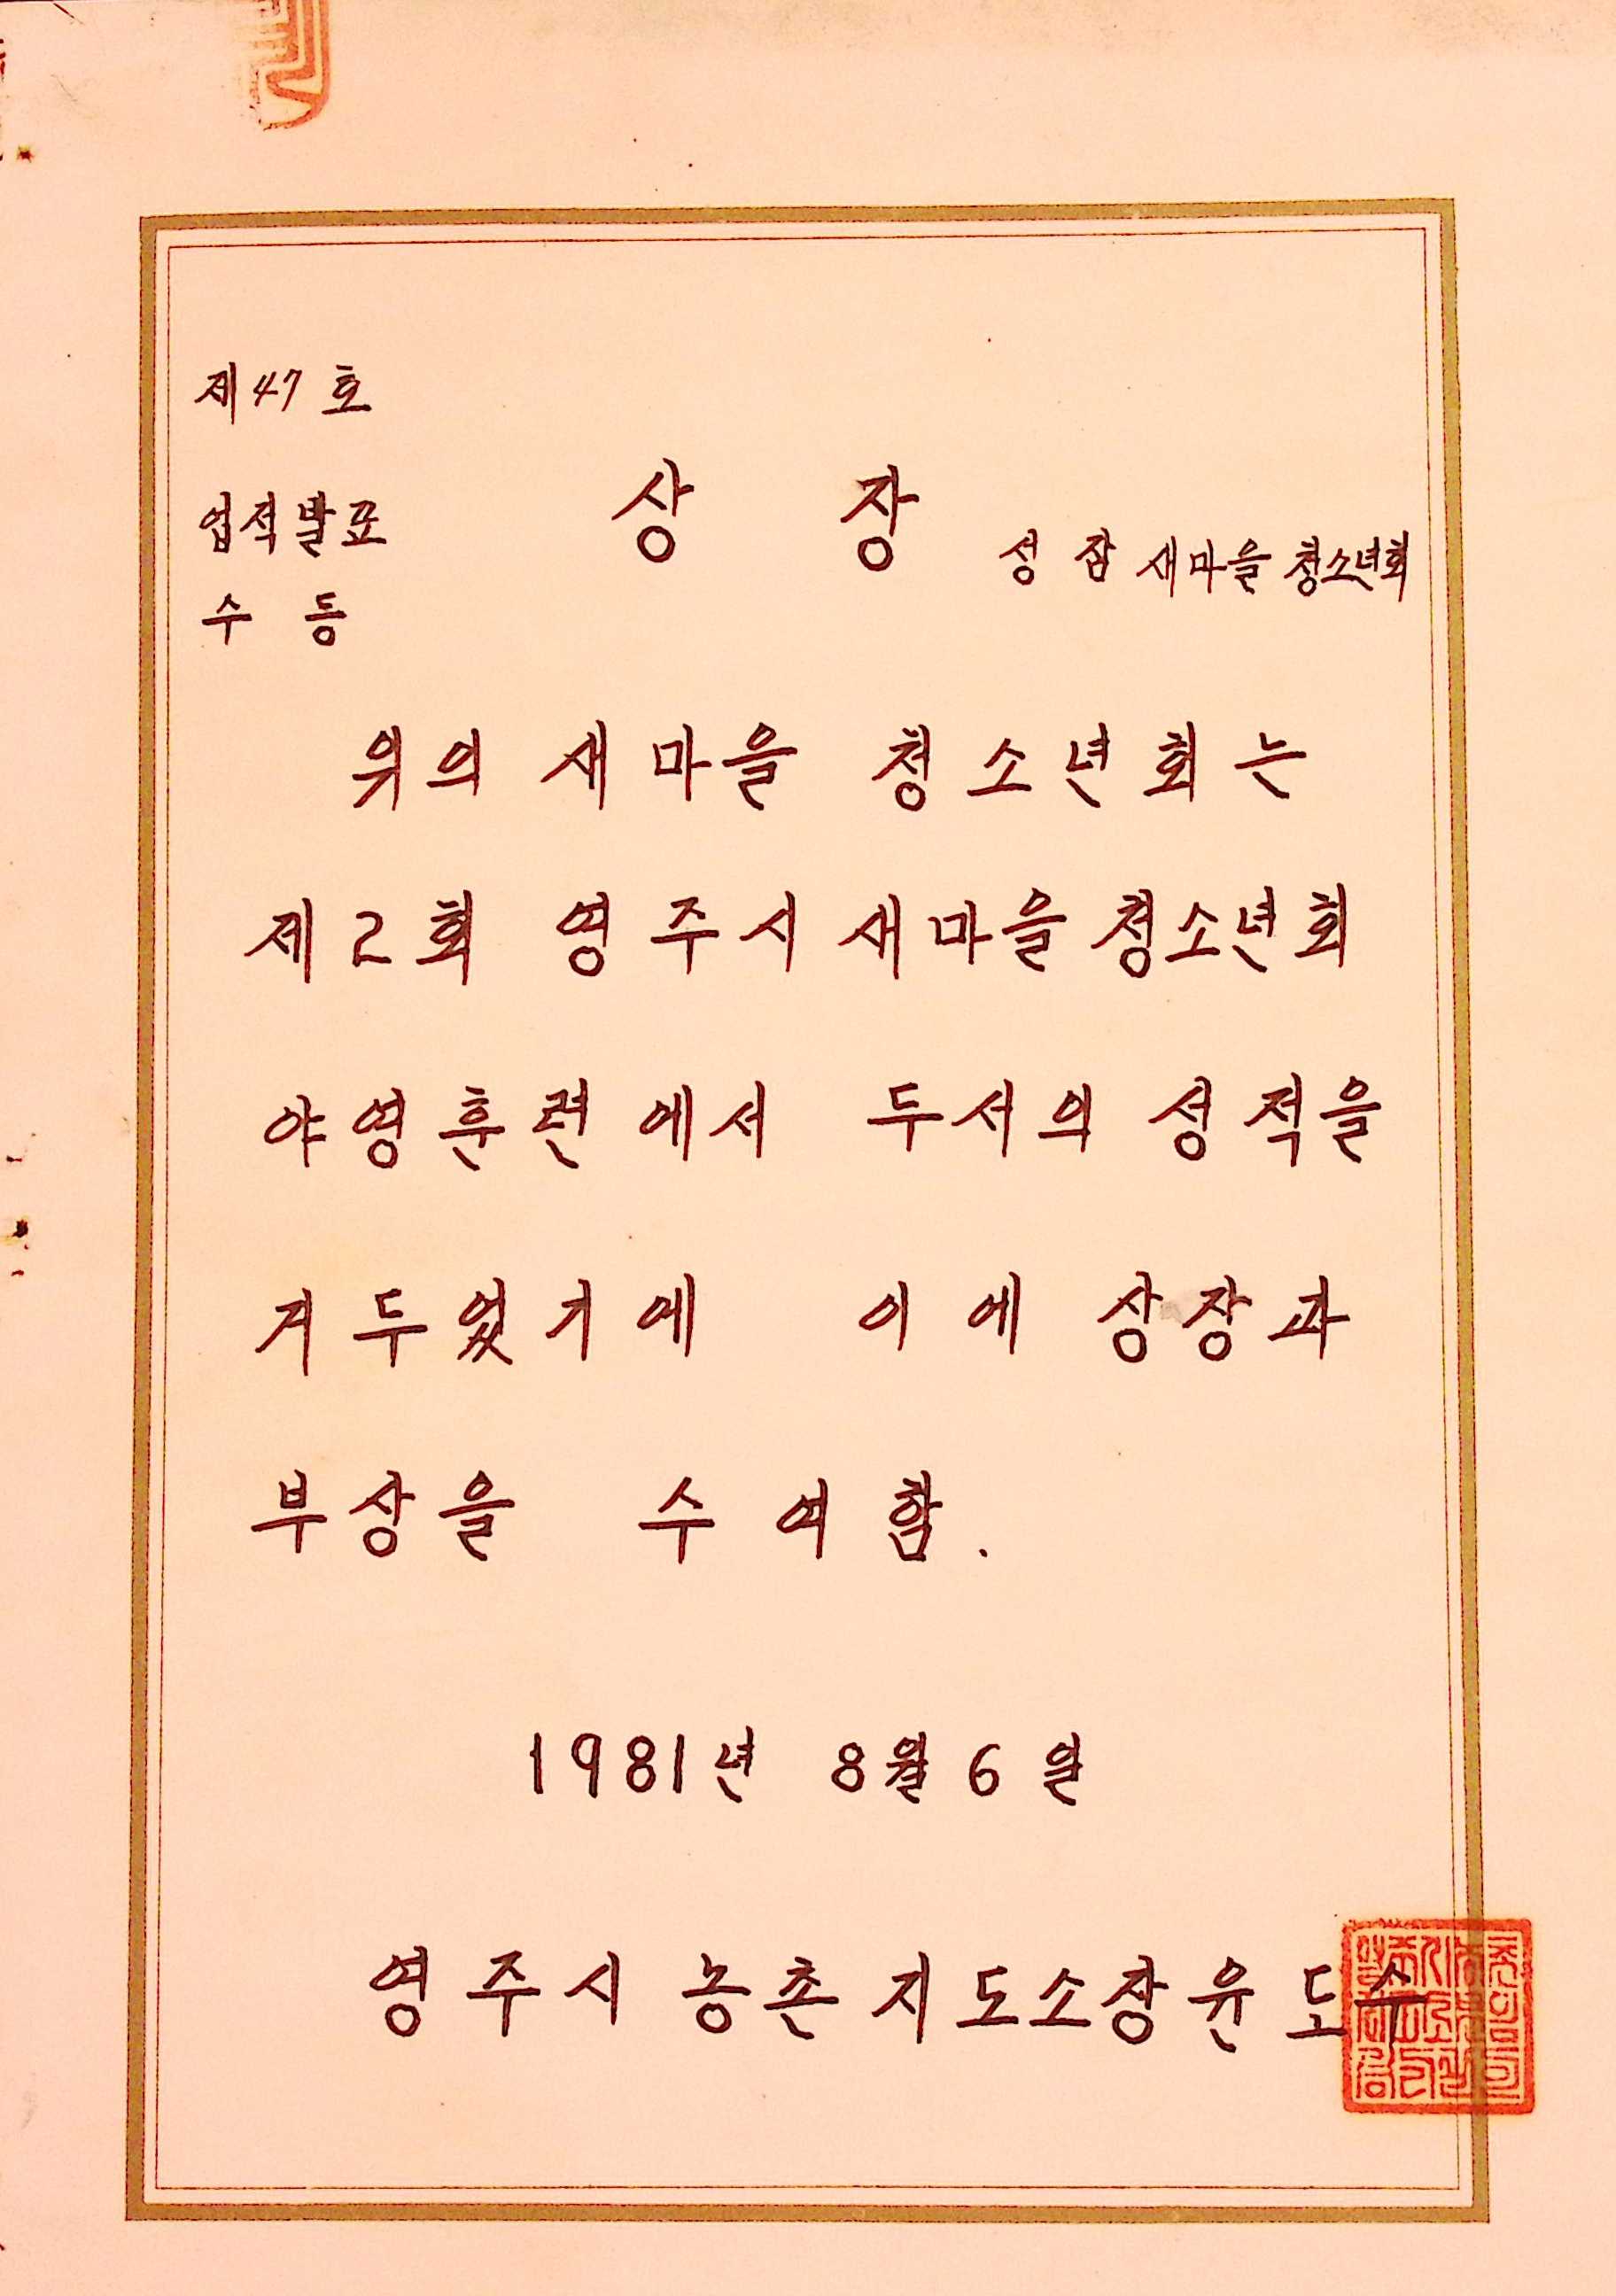 제47호
상 장
업적발표
수 등
성 잠 새마을 청소년회
위의 새마을 청소년회는
제2회 영주시 새마을 청소년회
야영훈련에서 두서의 성적을
거두었기에 이에 상장과
부상을 수여함.
1981년 8월 6일
영주시 농촌지도소장 윤도수